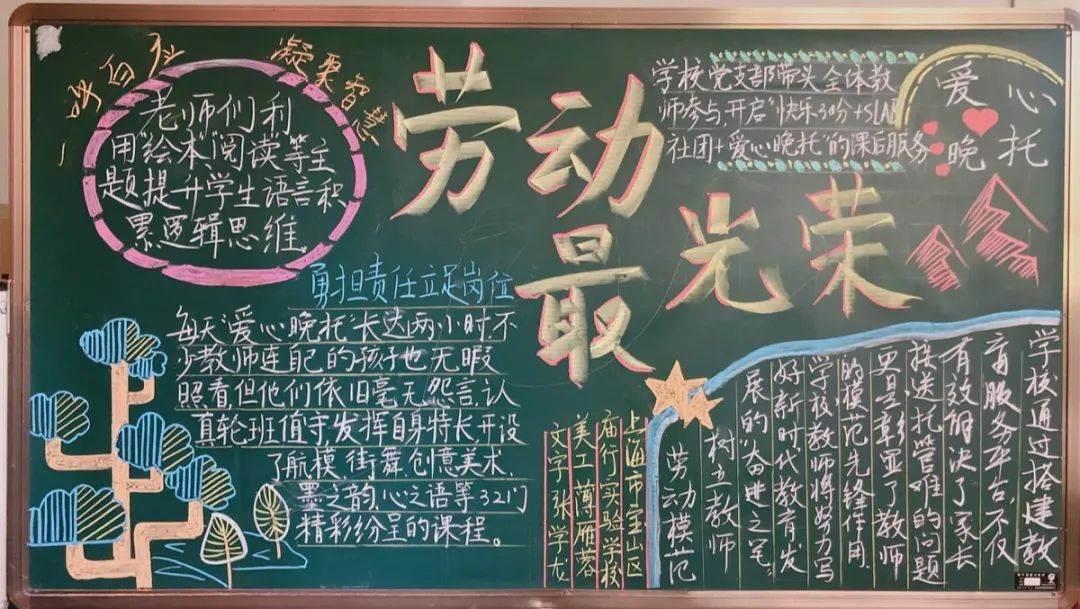 劳动
最光荣
凝聚智慧
老师们利
用“绘本阅读”等主
题提升学生语言积
累逻辑思维。
学校党支部带头全体教
师参与,开启“快乐30分+SLAB
社团+爱心晚托”的课后服务
爱心
晚托
勇担责任立足岗位
每天“爱心晚托”长达两小时,不
少教师连自己的孩子也无暇
照看但他们依旧毫无怨言,认
真轮班值守,发挥自身特长开设
了航模、街舞创意美术,
墨之韵,心之语等32门
精彩纷呈的课程。
学校通过搭建教
育服务平台,不仅
有效解决了家长
接送托管难的问题
更是彰显了教师
的模范先锋作用,
学校教师将努力写
好新时代教育发
展的“奋进之笔”
树立教师
劳动模范
上海市宝山区
庙行实验学校
美工 薄雁蓉
文字 张学龙